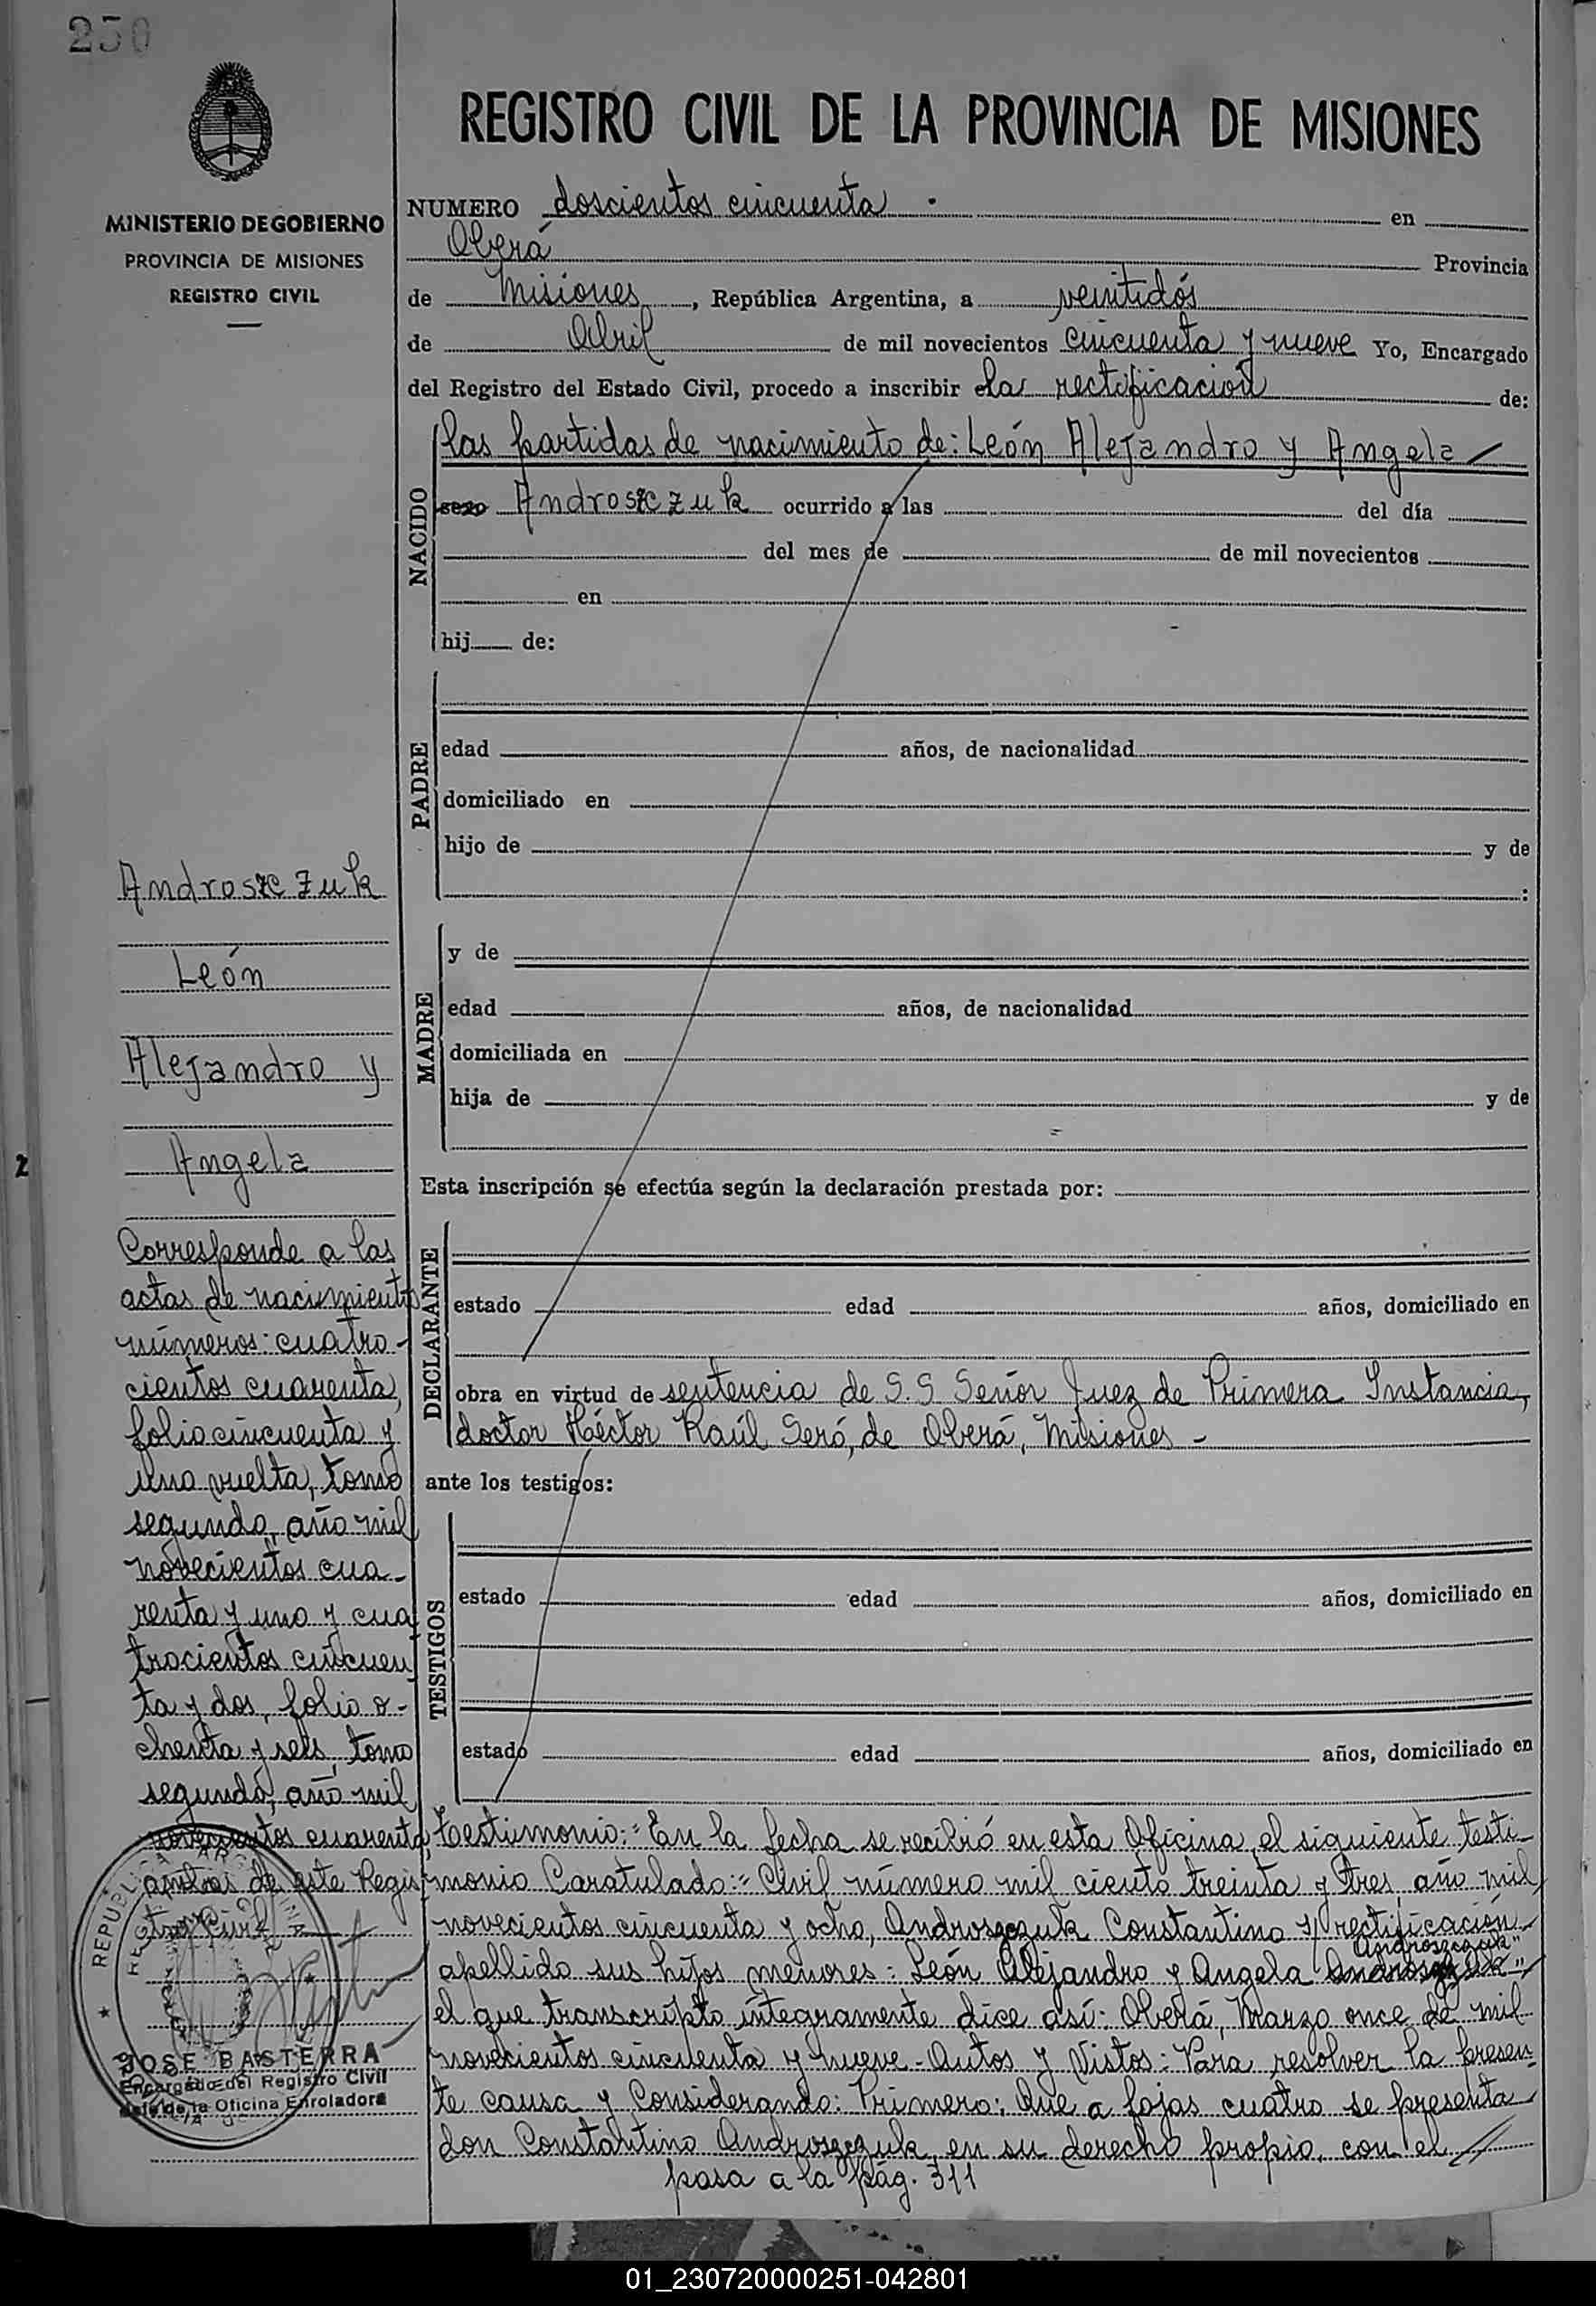 250
MINISTERIO DE GOBIERNO
PROVINCIA DE MISIONES
REGISTRO CIVIL
REGISTRO CIVIL DE LA PROVINCIA DE MISIONES
NUMERO doscientos cincuenta . en
Oberá Provincia
de Misiones, República Argentina, a veintidós
de Abril de mil novecientos cincuenta y nueve Yo, Encargado
del Registro del Estado Civil, procedo a inscribir la rectificación de:
NACIDO
las partidas de nacimiento de: León Alejandro y Angela
sexo Androszczuk ocurrido a las del día
del mes de de mil novecientos
en
hij de:
PADRE
edad años, de nacionalidad
domiciliado en
hijo de y de
:
MADRE
y de
edad años, de nacionalidad
domiciliada en
hija de y de
Esta inscripción se efectúa según la declaración prestada por:
DECLARANTE
estado edad años, domiciliado en
obra en virtud de sentencia de S.S Señor Juez de Primera Instancia,
doctor Héctor Raúl Seró, de Oberá, Misiones -
ante los testigos:
TESTIGOS
estado edad años, domiciliado en
estado edad años, domiciliado en
Testimonio:" En la fecha se recibió en esta Oficina, el siguiente testi-
monio Caratulado:" Civil número mil ciento treinta y tres, año mil
novecientos cincuenta y ocho, Androszczuk Constantino s/ rectificación
Androszczuk"
apellido sus hijos menores: León Alejandro y Angela
el que transcripto integramente dice así: Oberá, Marzo once de mil
novecientos cincuenta y nueve - Autos y Vistos: Para resolver la presen-
te causa y Considerando: Primero: Que a fojas cuatro se presenta
don Constantino Androszczuk en su derecho propio, con el //
pasa a la pág. 311
Androszczuk
León
Alejandro y
Angela
Corresponde a las
actas de nacimiento
números: cuatro-
cientos cuarenta,
folio cincuenta y
uno vuelta, tomo
segundo, año mil
novecientos cua-
renta y uno y cua
trocientos cincuen
ta y dos, folio o-
chenta y seis, tomo
segundo, año mil
novecientos cuarenta,
ambos de este Regis-
tro Civil
JOSE BASTERRA
Encargado del Registro Civil
Jefe de la Oficina Enroladora
2
01_230720000251-042801